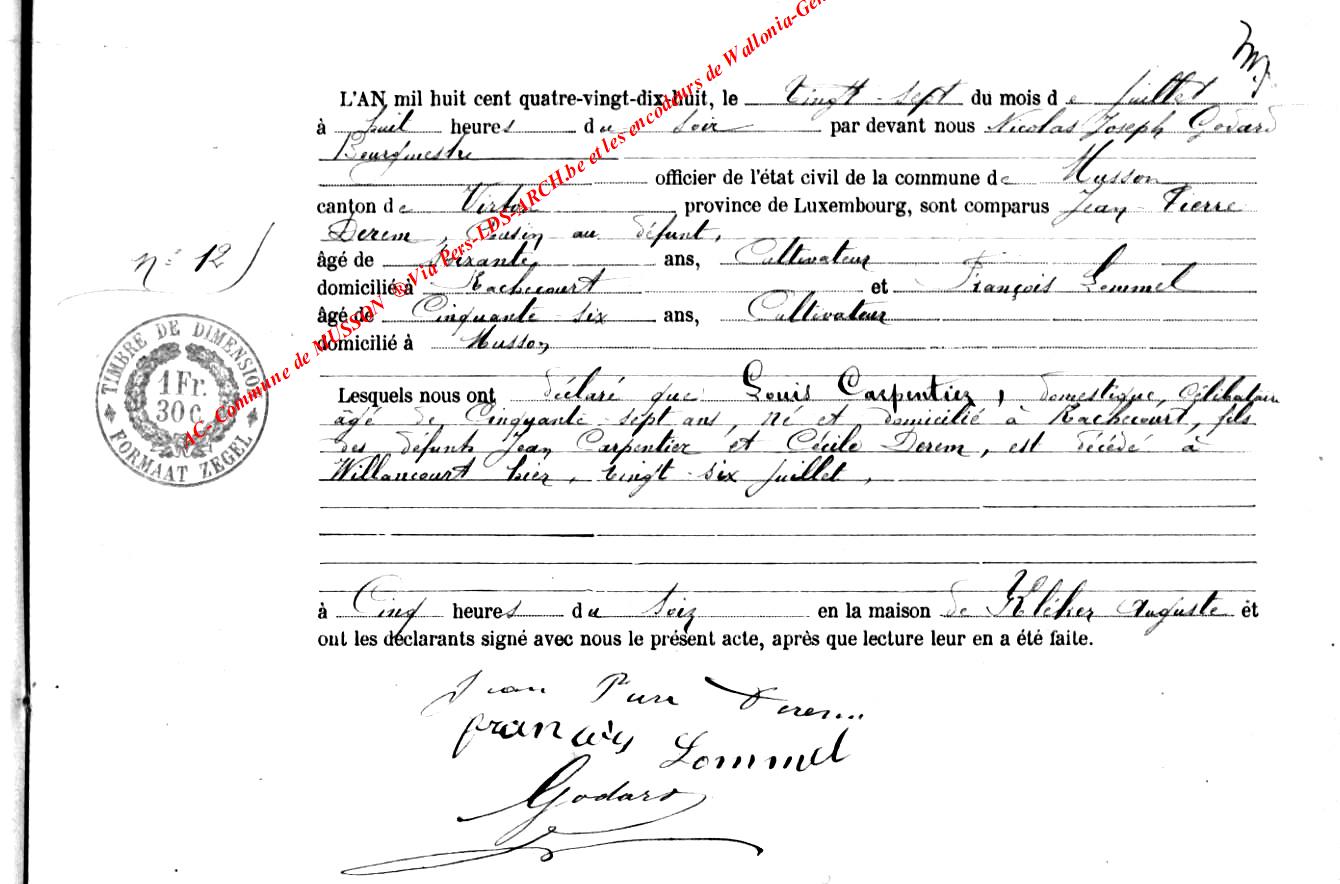 L'AN mil huit cent quatre-vingt-dix-huit, le vingt-sept du mois de juillet
à huit heures du soir par devant nous Nicolas Joseph Godard
Bourgmestre
officier de l'état civil de la commune de Musson
canton de Virton province de Luxembourg, sont comparus Jean-Pierre
Derem, cousin au défunt,
n° 12
âgé de soixante ans, Cultivateur
domicilié à Rachecourt et François Lommel
âgé de Cinquante-six ans, Cultivateur
domicilié à Musson
TIMBRE DE DIMENSION
1 Fr.
30 C.
FORMAAT ZEGEL
Lesquels nous ont déclaré que Louis Carpentier, domestique, célibataire
âgé de Cinquante-sept ans, né et domicilié à Rachecourt, fils
des défunts Jean Carpentier et Cécile Derem, est décédé à
Willancourt hier, vingt-six juillet,
à Cinq heures du soir en la maison de Kléker Auguste et
ont les déclarants signé avec nous le présent acte, après que lecture leur en a été faite.
Jean Pierre Derem
françois Lommel
Godard
AC- Commune de MUSSON ® Via Pers-LDS-ARCH.be et les encodeurs de Wallonia-Gen